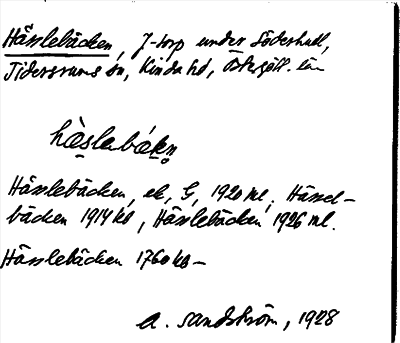 Hässlebäcken, J-torp under Söderhult,
Tidersrums sn, Kinda hd, Östergötl. län
hàslabákn
Hässlebäcken, ek, G, 1920 ml, Hässel-
bäcken 1914 kd, Hässlebäcken 1926 ml.
Hässlebäcken 1760 kb –
A. Sandström, 1928